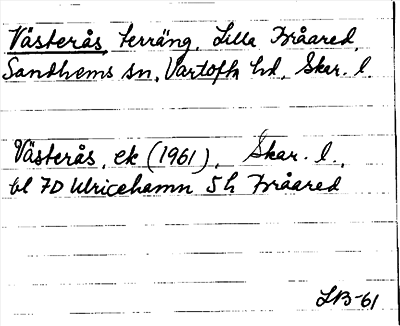 Västerås, terräng, Lilla Bråared,
Sandhems sn, Vartofta hd, Skar. l.
Västerås, ek (1961), Skar. l.,
bl 7D Ulricehamn 5h Bråared
LB-61